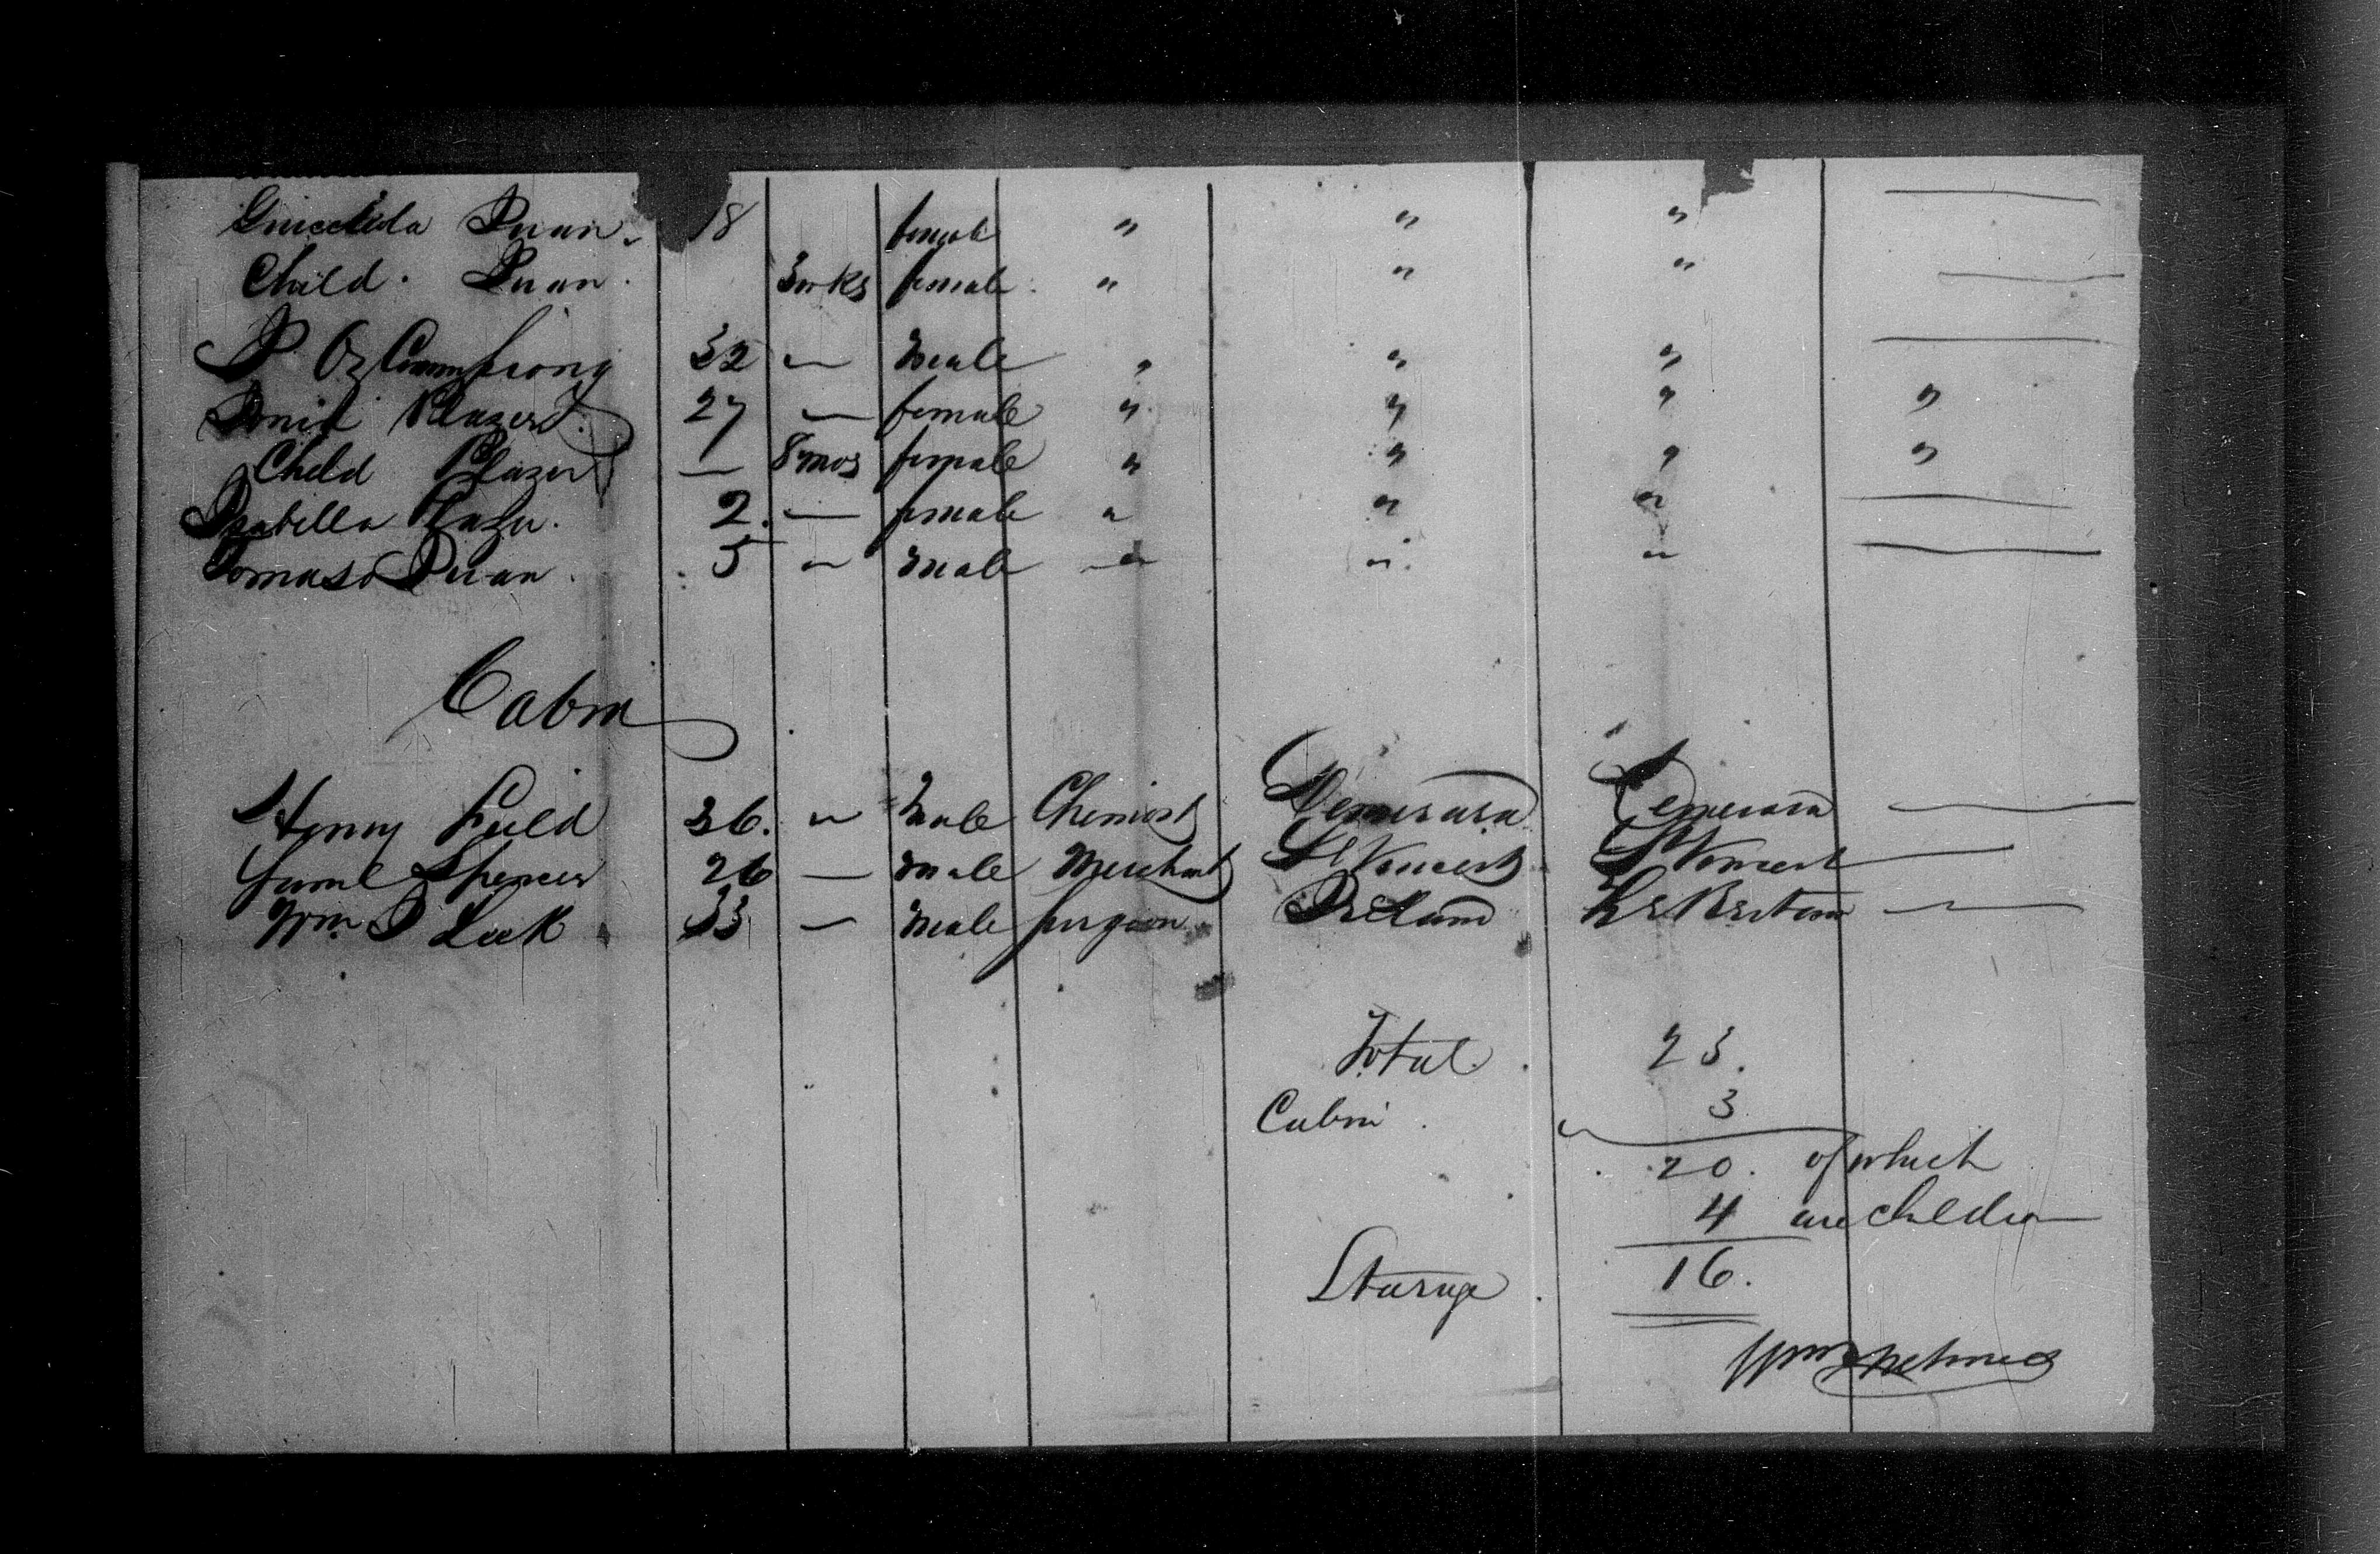 Juan 18 female " " "
Child. Juan. 3wks female " " "
32 — Male " " "
27 — female " " " "
Child 8mos female " " " "
Isabella 2. — female " " "
Tomaso Juan. 5 " Male " " "
Cabin
Henry Field 36. " Male Chemist Demerara Demerara —
Saml Spencer 26 — male Merchant St Vincent St Vincent —
Wm Leek 33 — Male Surgeon Ireland Gr Britain —
Total. 23.
Cabin. 3
20. of which
4 are Children
Sturage. 16.
Wm